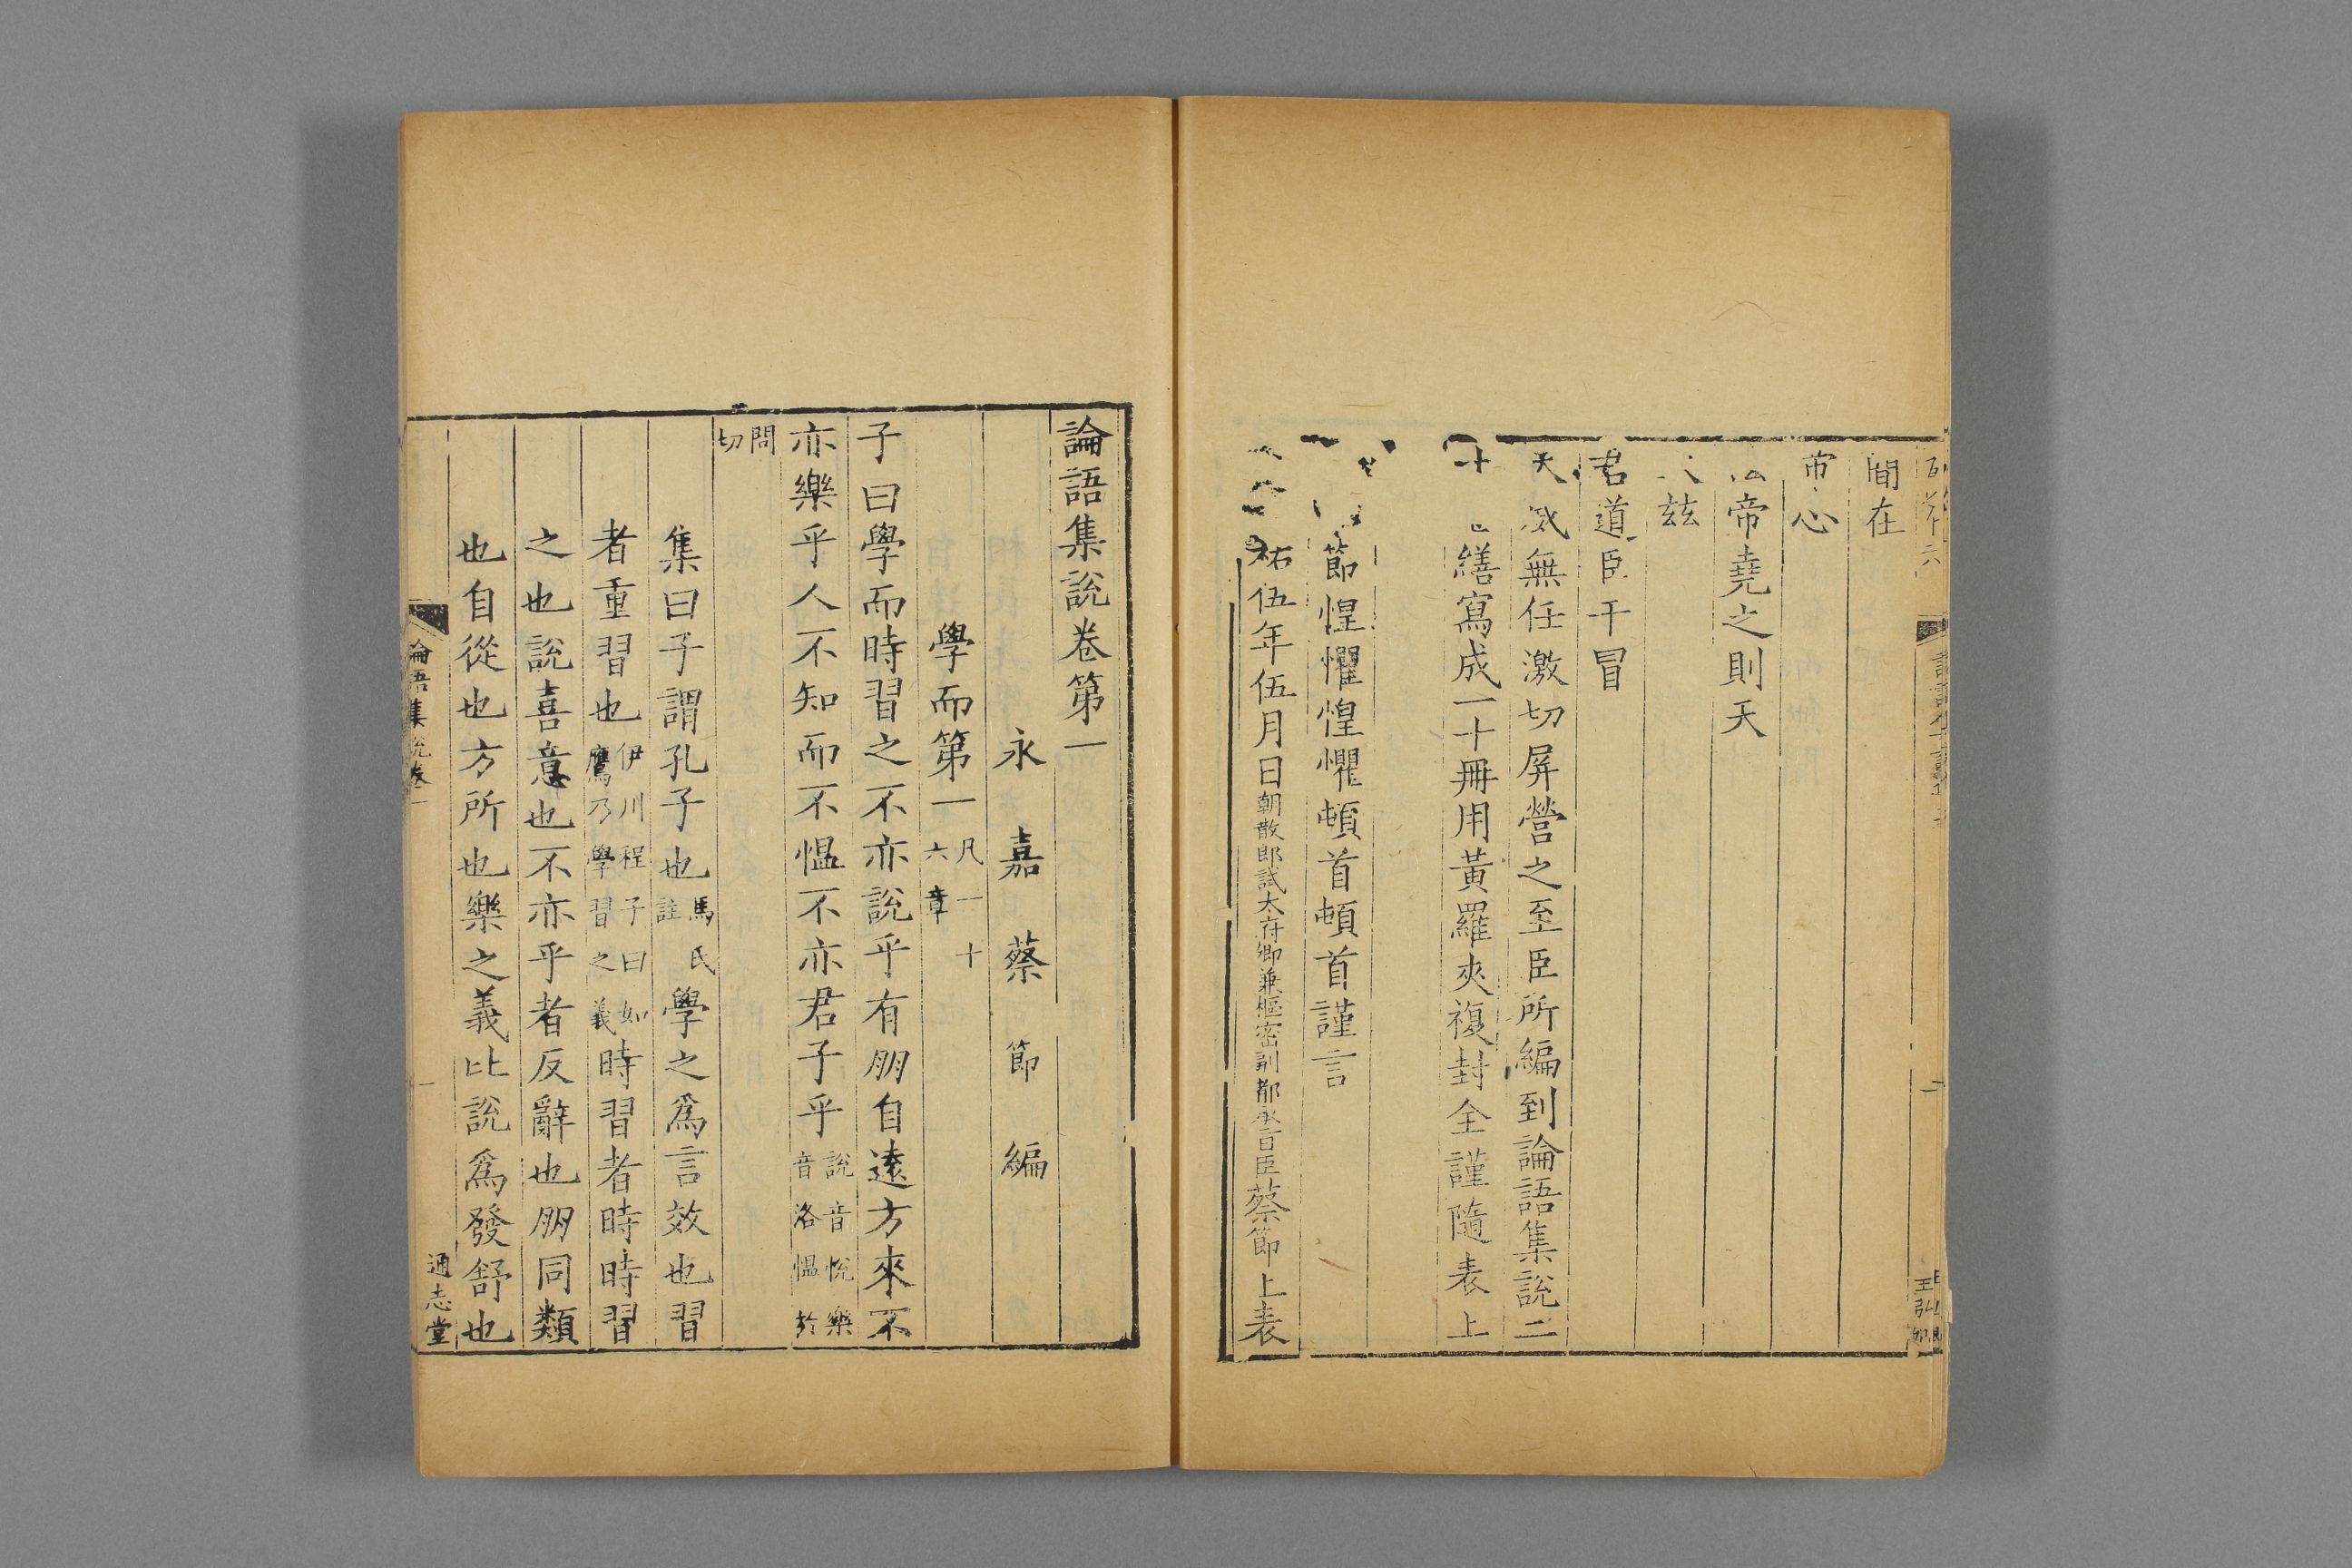 間在
帝心
帝堯之則天
茲
君道臣干冒
天威無任激切屏營之至臣所編到論語集說二
十 繕寫成一十冊用黃羅夾複封全謹隨表上
節惶懼惶懼頓首頓首謹言
祐伍年伍月日朝散郎試太府卿兼樞密副都承旨臣蔡節上表
論語集說卷第一
永嘉蔡節編
學而第一凡一十六章
子曰學而時習之不亦說乎有朋自遠方來不
亦樂乎人不知而不慍不亦君子乎說音悅樂音洛慍於
問切
集曰子謂孔子也馬氏註學之為言效也習
者重習也伊川程子曰如鷹乃學習之義時習者時時習
之也說喜意也不亦乎者反辭也朋同類
也自從也方所也樂之義比說為發舒也
論語集說卷一
一
通志堂